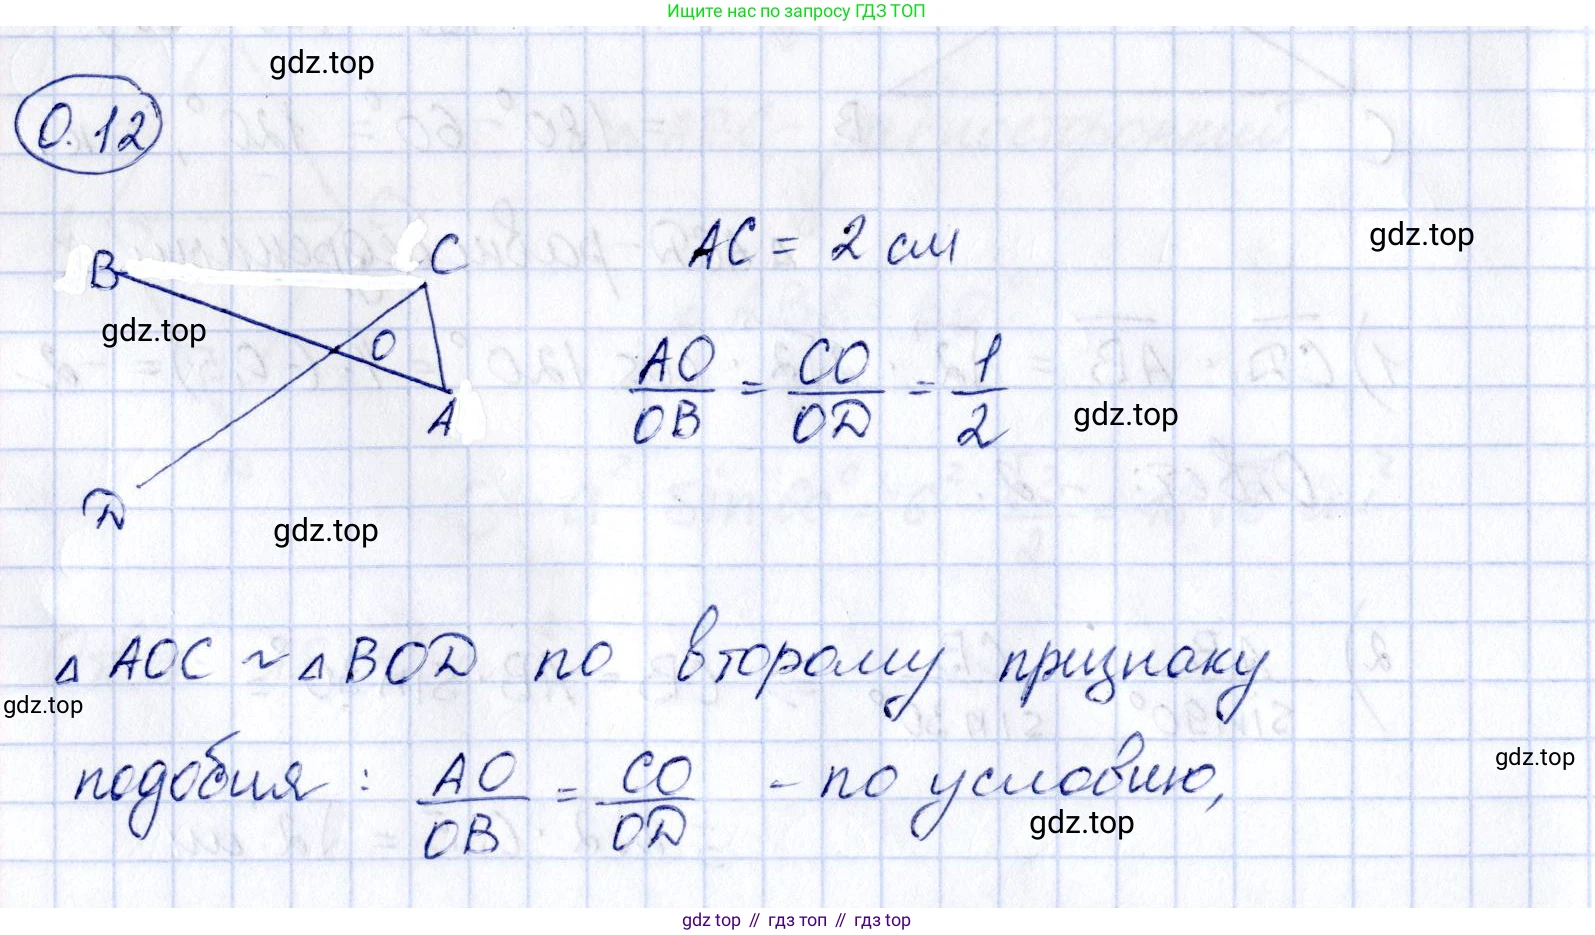 Ищите нас по запросу ГДЗ ТОП
gdz.top
0.12
B
C
AC = 2 см
gdz.top
gdz.top
O
AO/OB = CO/OD = 1/2
A
gdz.top
D
gdz.top
△AOC ~ △BOD по второму признаку
gdz.top
подобия: AO/OB = CO/OD - по условию,
gdz.top
gdz.top
gdz top // гдз топ // gdz top